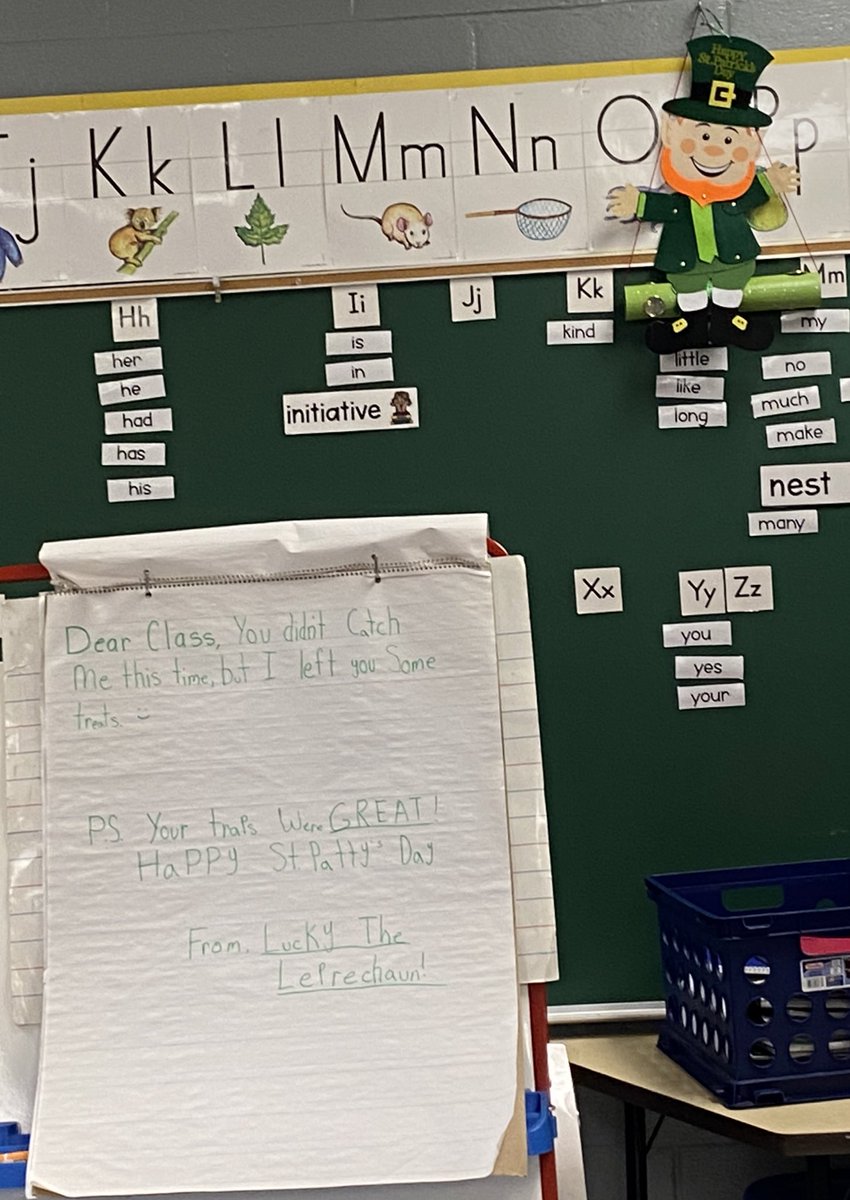 Happy
St. Patrick's
Day
j Kk Ll Mm Nn O p
Hh
her
he
had
has
his
Ii
is
in
initiative
Jj
Kk
kind
little
like
long
Mm
my
no
much
make
nest
many
Xx
Yy
you
yes
your
Zz
Dear Class, You didn't Catch
Me this time, but I left you Some
treats.
P.S. Your traps Were GREAT!
HaPPy St. Patty's Day
From, Lucky The
Leprechaun!